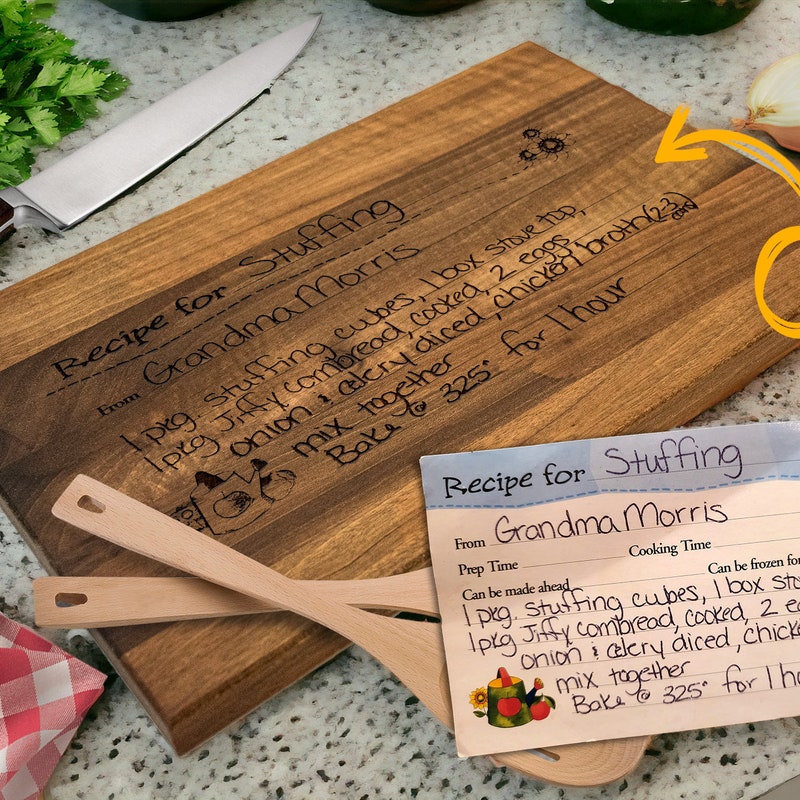 Recipe for Stuffing
From Grandma Morris
1 pkg. stuffing cubes, 1 box stove top,
1 pkg Jiffy cornbread, cooked, 2 eggs
onion & celery diced, chicken broth (2-3 cans)
mix together
Bake @ 325° for 1 hour
Recipe for Stuffing
From Grandma Morris
Prep Time Cooking Time
Can be made ahead Can be frozen for
1 pkg. stuffing cubes, 1 box
1 pkg Jiffy cornbread, cooked, 2
onion & celery diced,
mix together
Bake @ 325° for 1